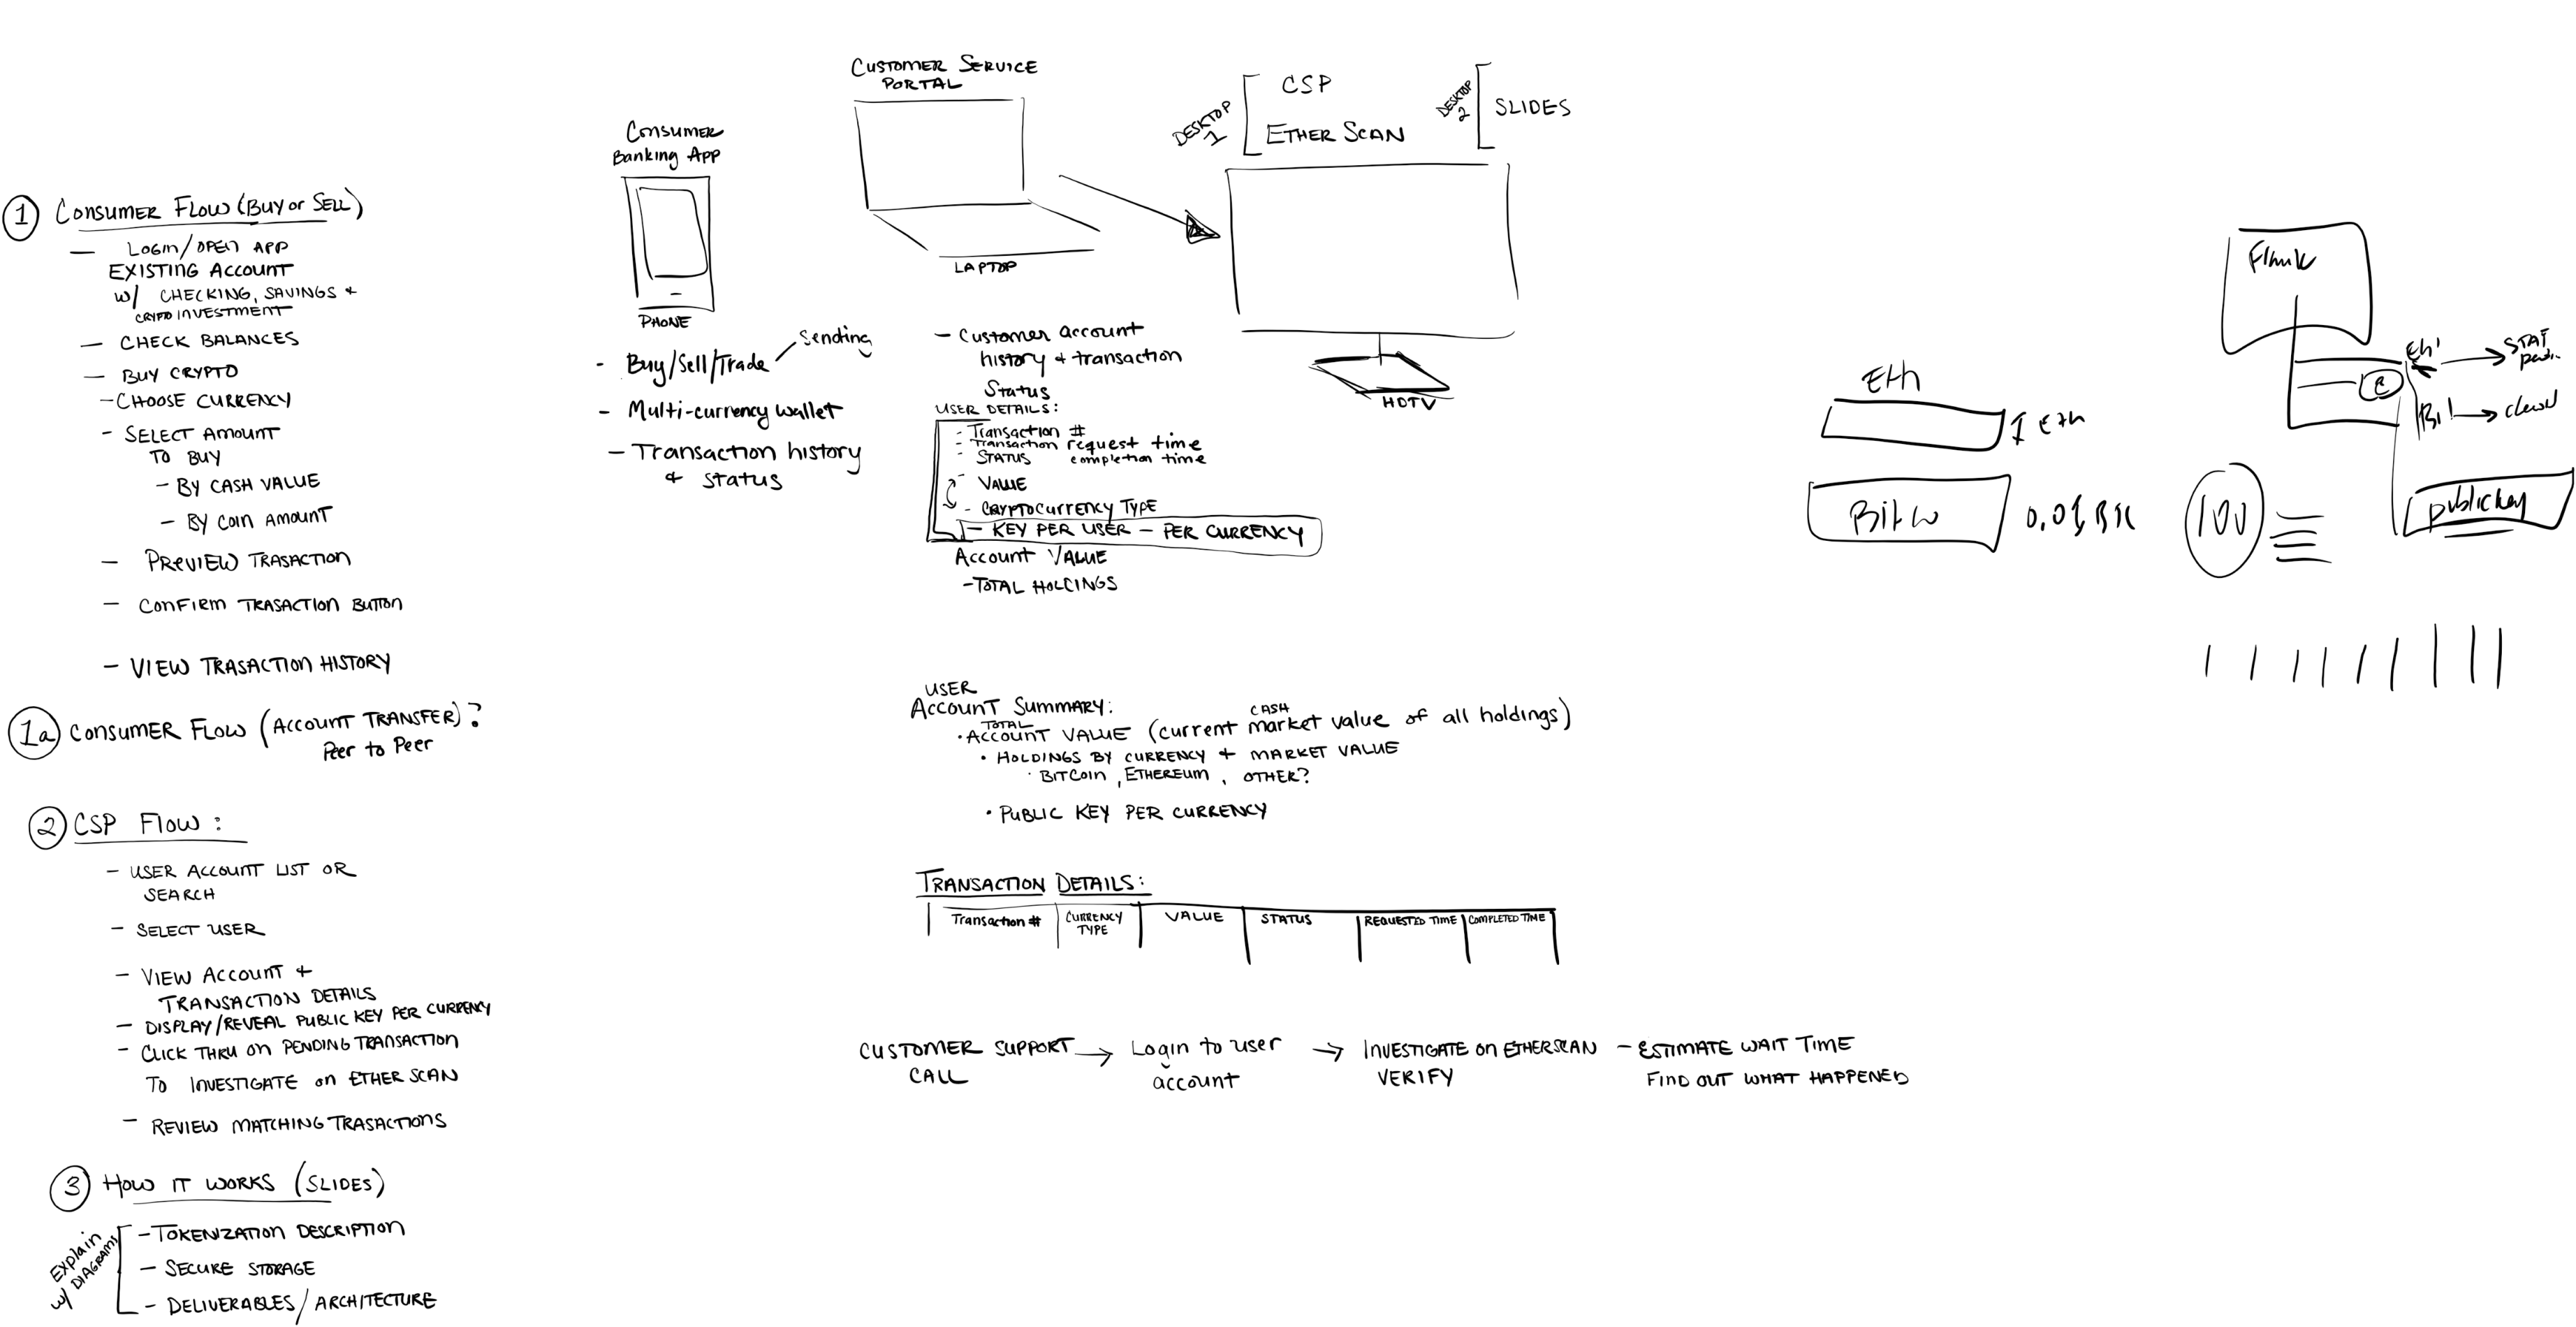 1 CONSUMER FLOW (BUY or SELL)
— LOGIN/OPEN APP
EXISTING ACCOUNT
W/ CHECKING, SAVINGS +
CRYPTO INVESTMENT
— CHECK BALANCES
— BUY CRYPTO
- CHOOSE CURRENCY
- SELECT AMOUNT
TO BUY
- BY CASH VALUE
- BY COIN AMOUNT
- PREVIEW TRASACTION
- CONFIRM TRASACTION BUTTON
- VIEW TRASACTION HISTORY
1a CONSUMER FLOW (ACCOUNT TRANSFER)?
Peer to Peer
2 CSP FLOW:
- USER ACCOUNT LIST OR
SEARCH
- SELECT USER
- VIEW ACCOUNT +
TRANSACTION DETAILS
- DISPLAY/REVEAL PUBLIC KEY PER CURRENCY
- CLICK THRU ON PENDING TRANSACTION
TO INVESTIGATE ON ETHER SCAN
- REVIEW MATCHING TRASACTIONS
3 HOW IT WORKS (SLIDES)
Explain
W/ DIAGRAMS
- TOKENIZATION DESCRIPTION
- SECURE STORAGE
- DELIVERABLES/ARCHITECTURE
Consumer
Banking App
PHONE
- Buy/Sell/Trade
Sending
- Multi-currency wallet
- Transaction history
+ status
CUSTOMER SERVICE
PORTAL
LAPTOP
- Customer account
history + transaction
Status
USER DETAILS:
- Transaction #
- Transaction request time
- STATUS completion time
- VALUE
- CRYPTOCURRENCY TYPE
- KEY PER USER - PER CURRENCY
Account VALUE
- TOTAL HOLCINGS
DESKTOP
1
CSP
ETHER SCAN
DESKTOP
2
SLIDES
HDTV
USER
ACCOUNT SUMMARY:
TOTAL
CASH
• ACCOUNT VALUE (current market value of all holdings)
• HOLDINGS BY CURRENCY + MARKET VALUE
• BITCOIN, ETHEREUM, OTHER?
• PUBLIC KEY PER CURRENCY
TRANSACTION DETAILS:
Transaction #
CURRENCY
TYPE
VALUE
STATUS
REQUESTED TIME
COMPLETED TIME
CUSTOMER SUPPORT
CALL
→ Login to user
account
→ INVESTIGATE ON ETHERSCAN
VERIFY
- ESTIMATE WAIT TIME
FIND OUT WHAT HAPPENED
Eth
1 Eth
100
public key